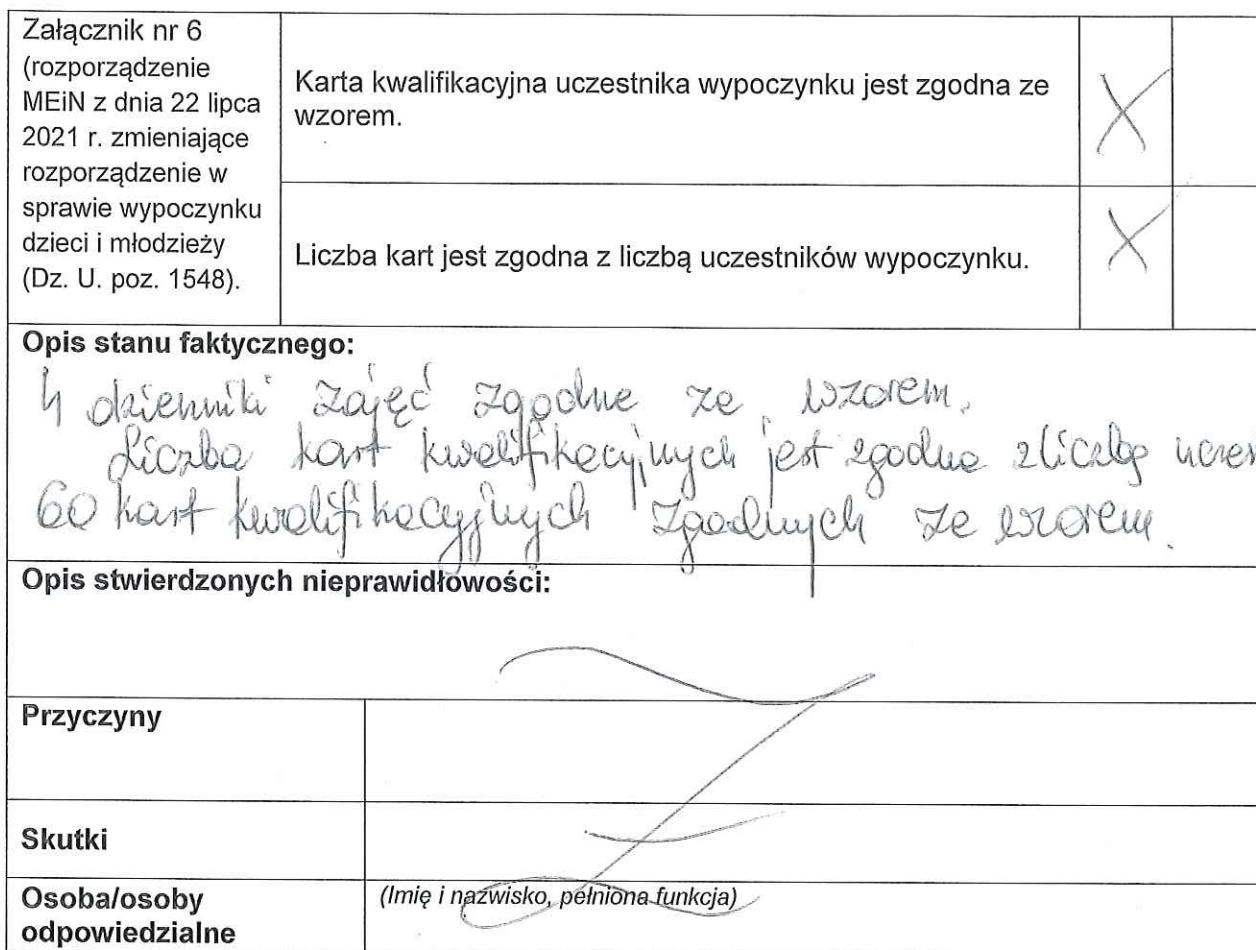 Załącznik nr 6
(rozporządzenie
MEiN z dnia 22 lipca
2021 r. zmieniające
rozporządzenie w
sprawie wypoczynku
dzieci i młodzieży
(Dz. U. poz. 1548).
Karta kwalifikacyjna uczestnika wypoczynku jest zgodna ze
wzorem.
X
Liczba kart jest zgodna z liczbą uczestników wypoczynku.
X
Opis stanu faktycznego:
4 dzienniki zajęć zgodne ze wzorem.
Liczba kart kwalifikacyjnych jest zgodna z liczbą
60 kart kwalifikacyjnych zgodnych ze wzorem.
Opis stwierdzonych nieprawidłowości:
Przyczyny
Skutki
Osoba/osoby
odpowiedzialne
(Imię i nazwisko, pełniona funkcja)